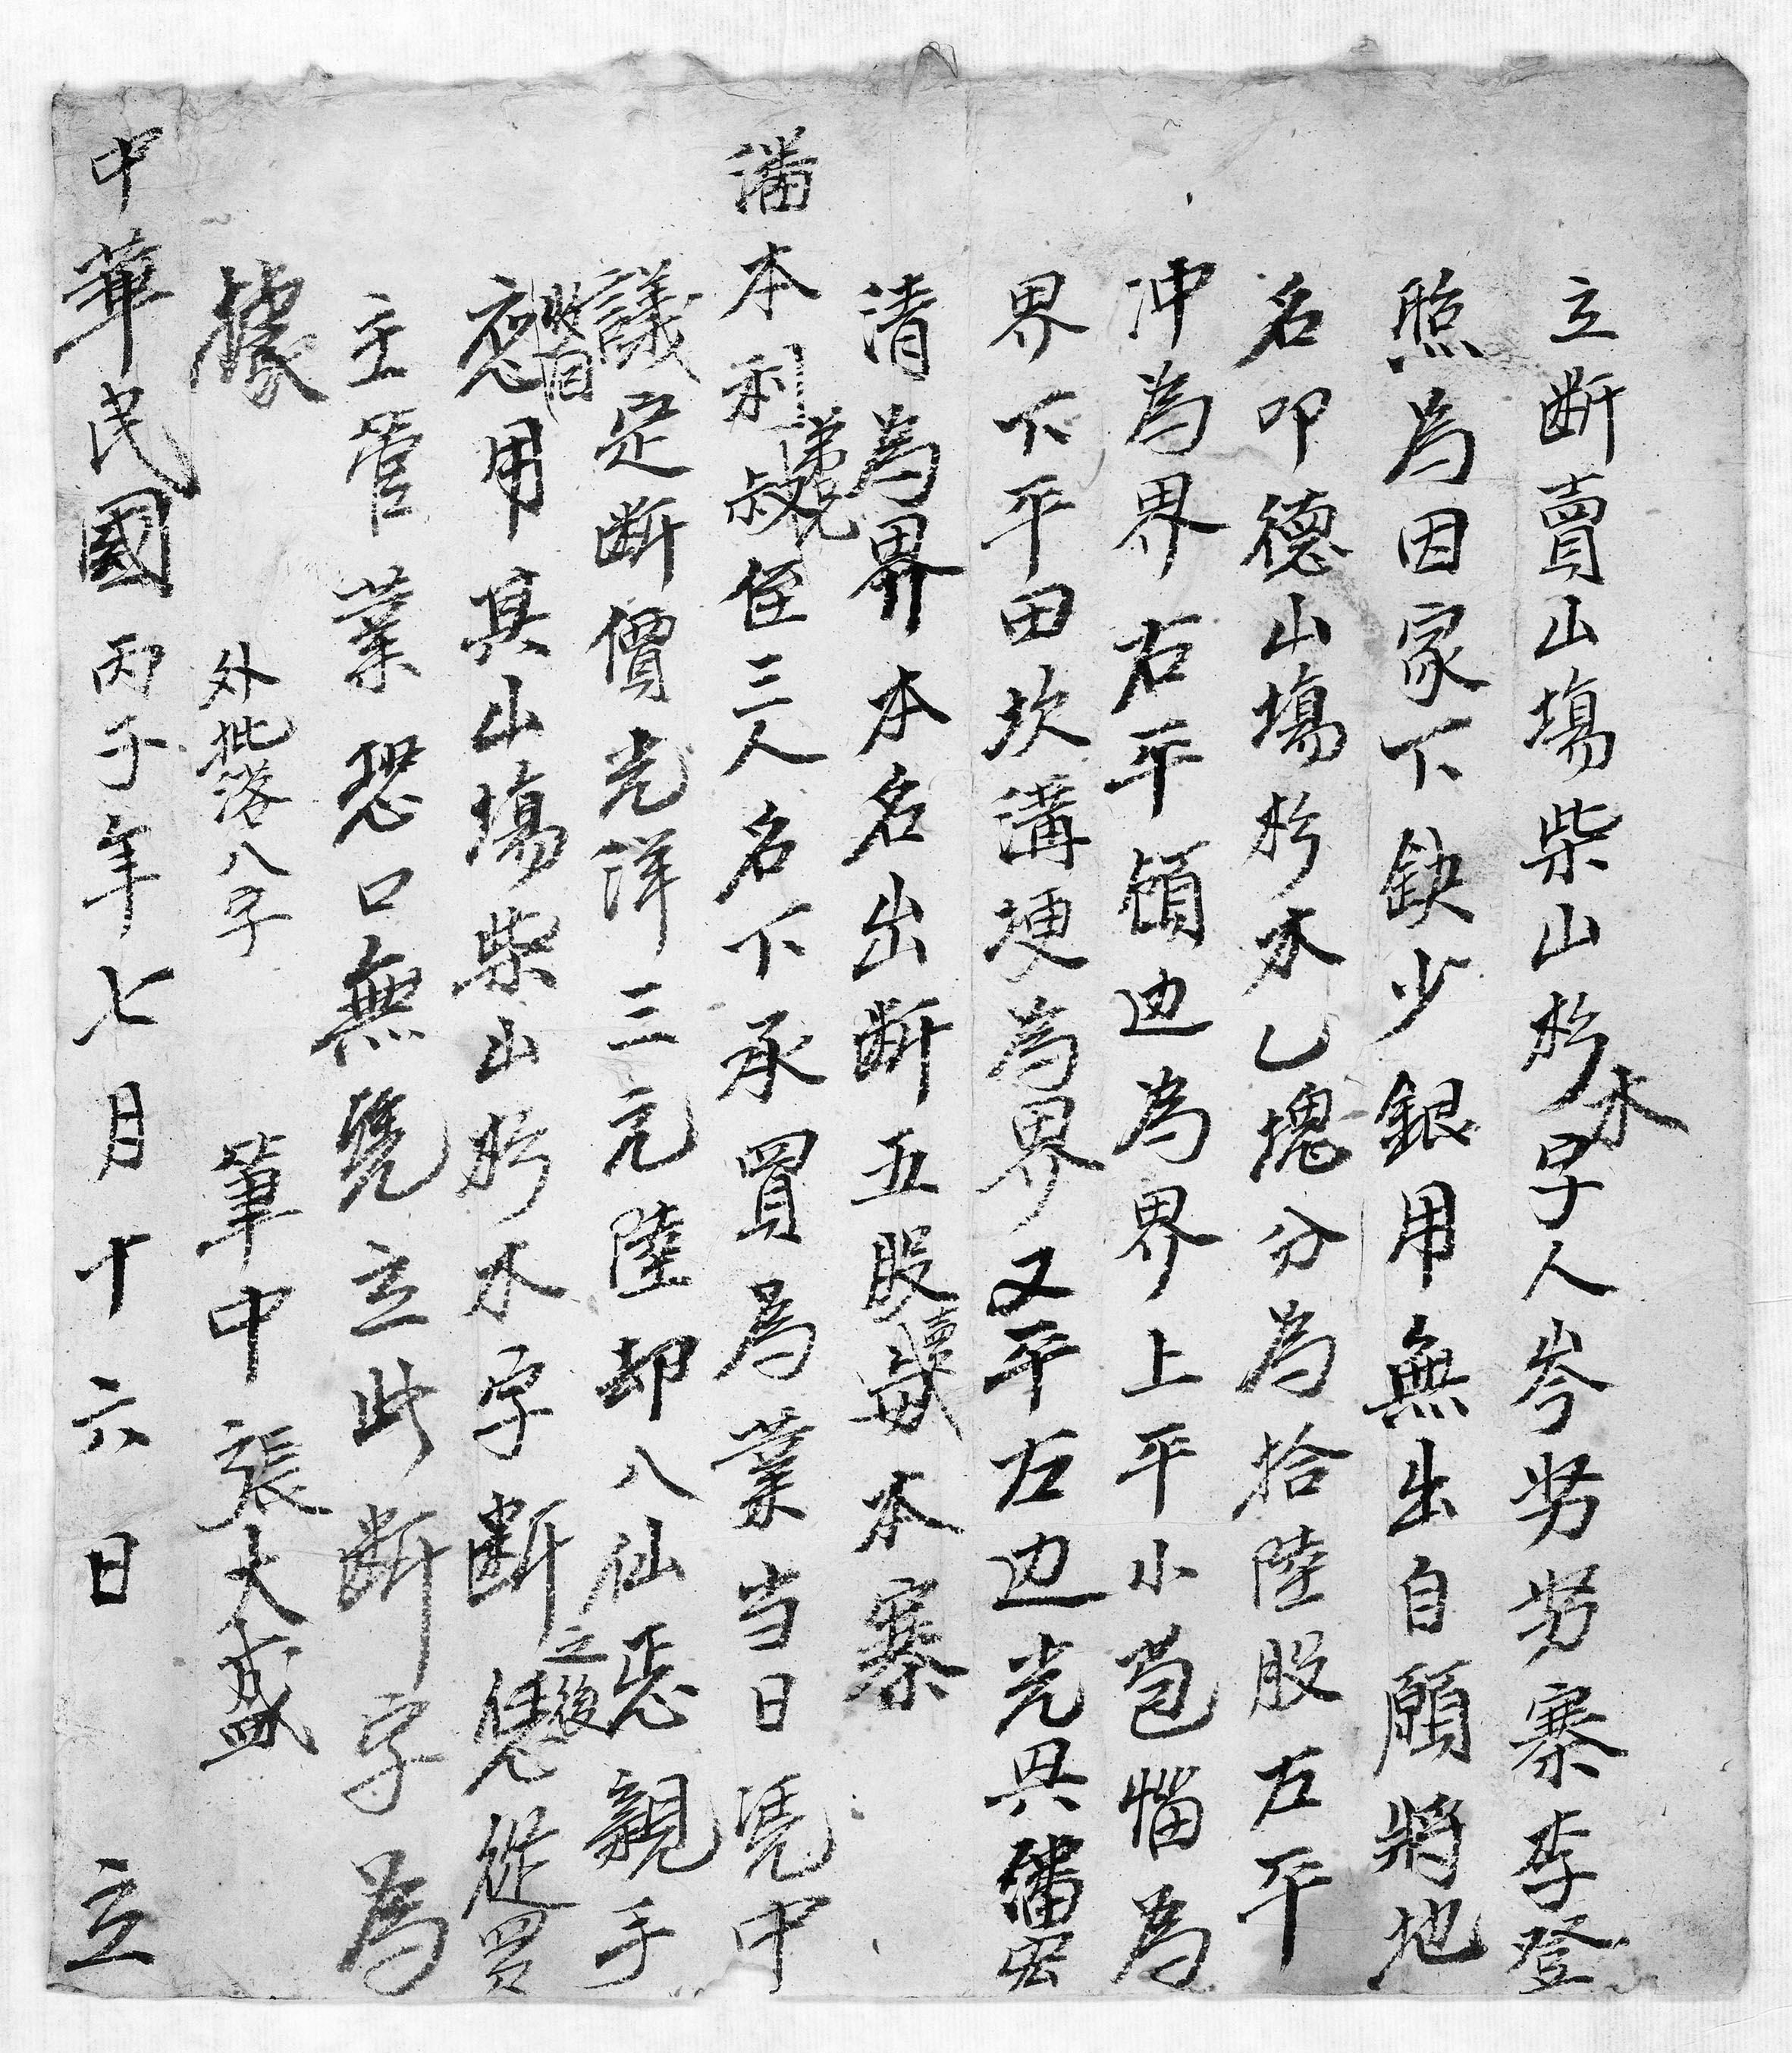 立断賣山塲柴山杉木字人岑努努寨李登
照為因家下缺少銀用無出自願將地
名叩德山塲杉木乙塊分為拾陸股左平
冲為界右平嶺边為界上平小苞惱為
界下平田坎溝埂為界又平左边光具潘宏
清為界本名出断五股賣與本寨
潘本利弟兄叔侄三人名下承買為業当日凭中
議定断價光洋三元陸却八仙親手
收回應用其山塲柴山杉木字断之後從買
主管業恐口無憑立此断字為
據
外批落八字
筆中張大盛
中華民國丙子年七月十六日立